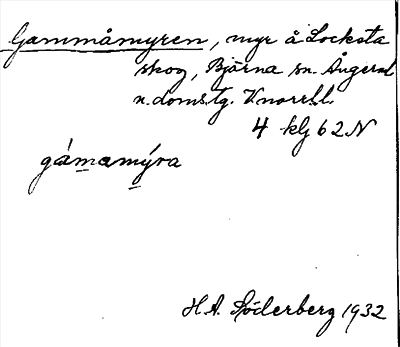 Gammåmyren, myr å Locksta
skog, Björna sn. Ångerml
n. doms.tg. V.norrl.l.
4 klj 62 N
gámamýra
H. A. Söderberg 1932